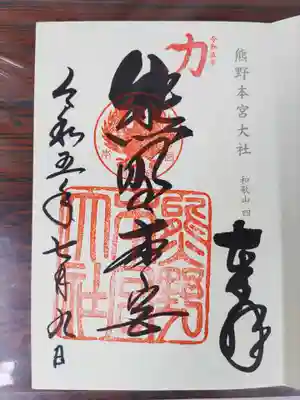 熊野本宮大社 和歌山 四
奉拝
令和五年
力
熊野本宮
熊野
本宮
大社
令和五年七月九日